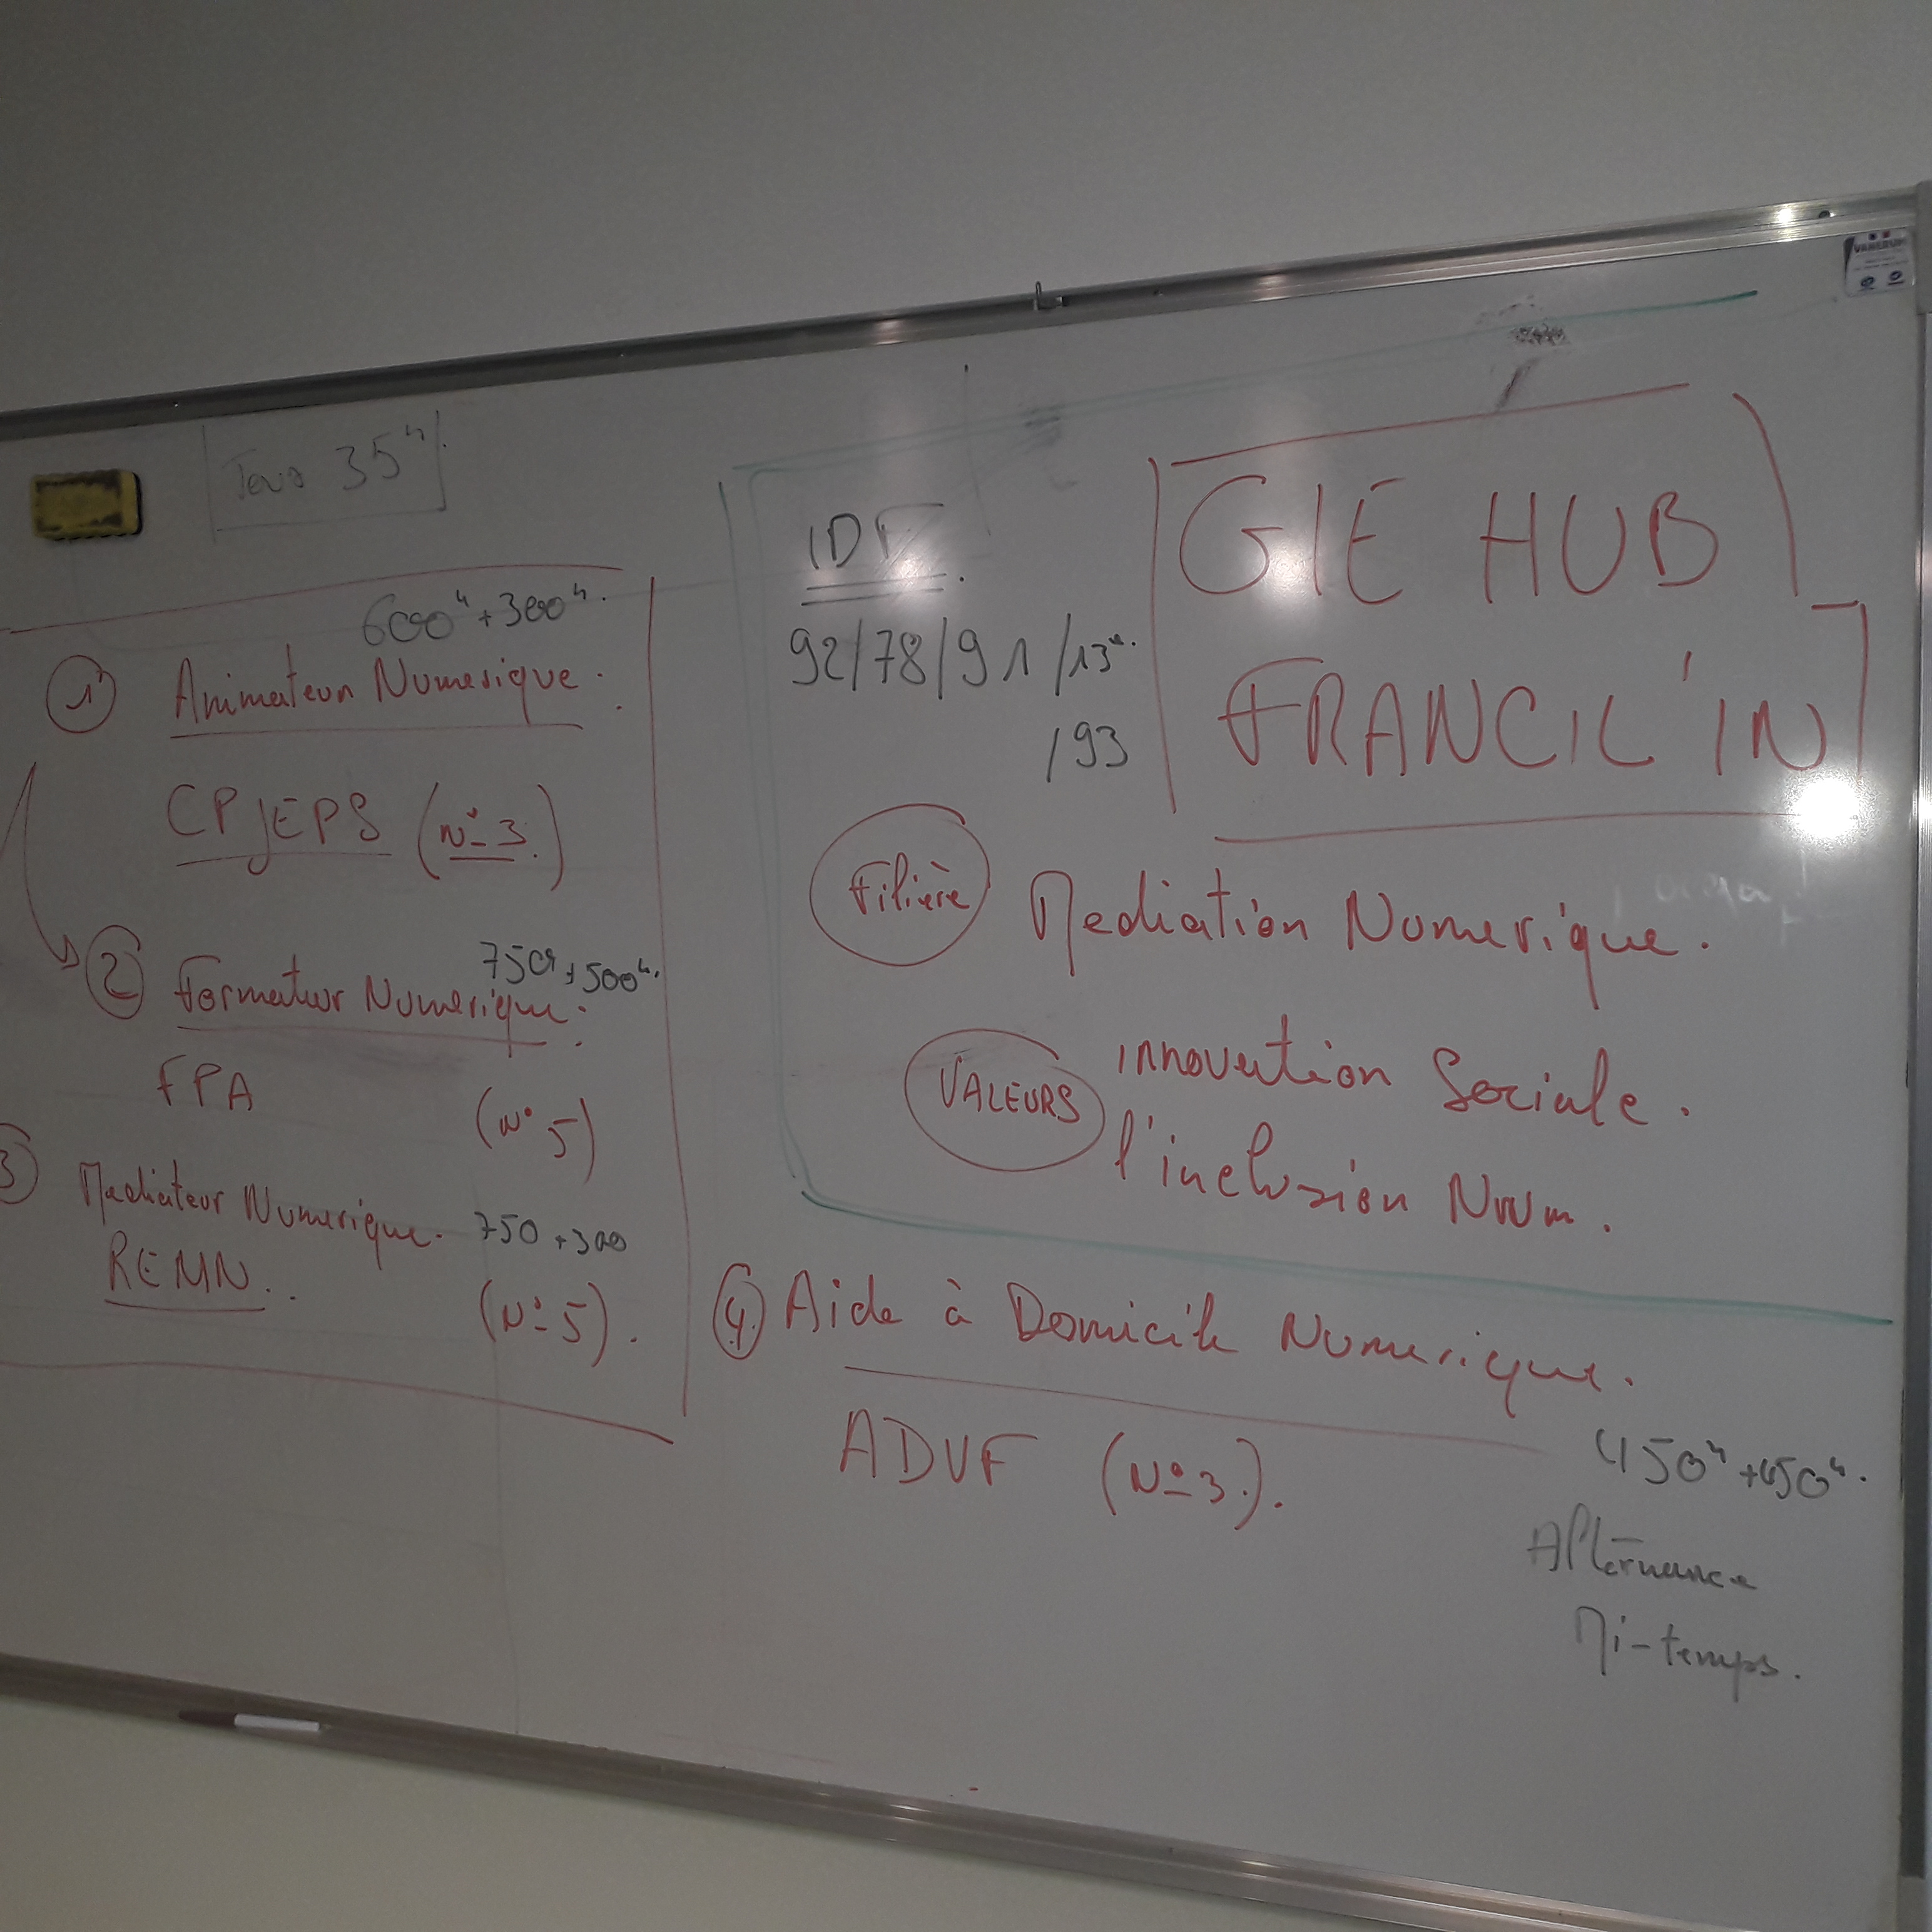 Tous 35h.
600h + 300h.
① Animateur Numerique.
CPJEPS (N° 3.)
② Formateur Numerique. 750h + 500h.
FPA (N° 5)
③ Mediateur Numerique. 750 + 300
REMN.. (N° 5).
IDF.
92/78/91/13e.
/93
GIE HUB
FRANCIL'IN
Filière Mediation Numerique.
VALEURS innovation Sociale.
l'inclusion Num.
④ Aide à Domicile Numerique.
ADVF (N° 3.).
450h + 450h.
Alternance
Mi-temps.